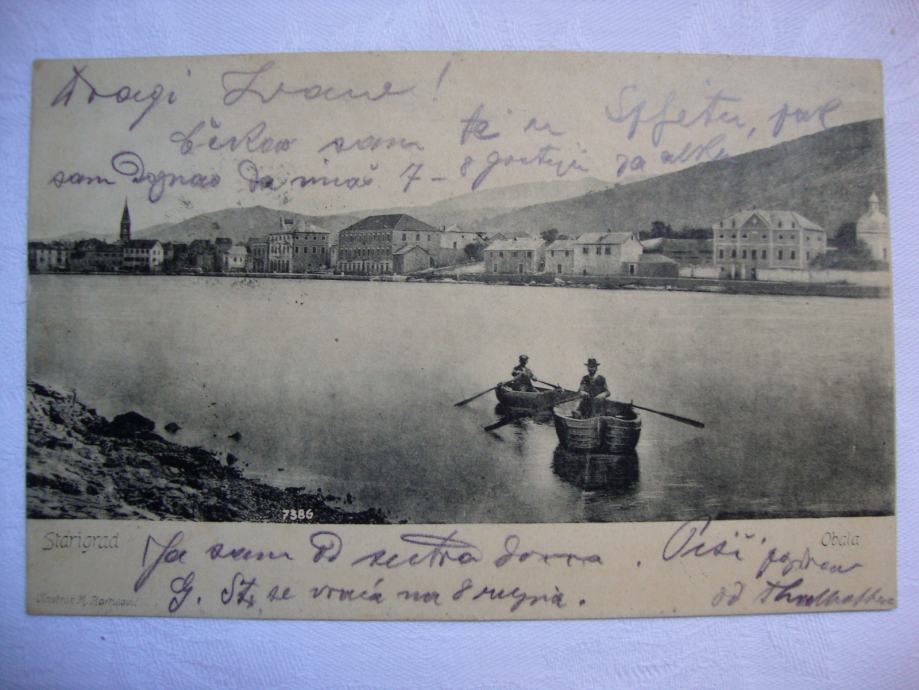 Dragi Ivane!
Čekao sam te u Spljetu, pak
sam Doznao da imaš 7-8 gostiju za alku
7386
Starigrad
Obala
Ja sam od sutra doma. Piši pozdrav
G. St. se vraća na 8 rujna.
od